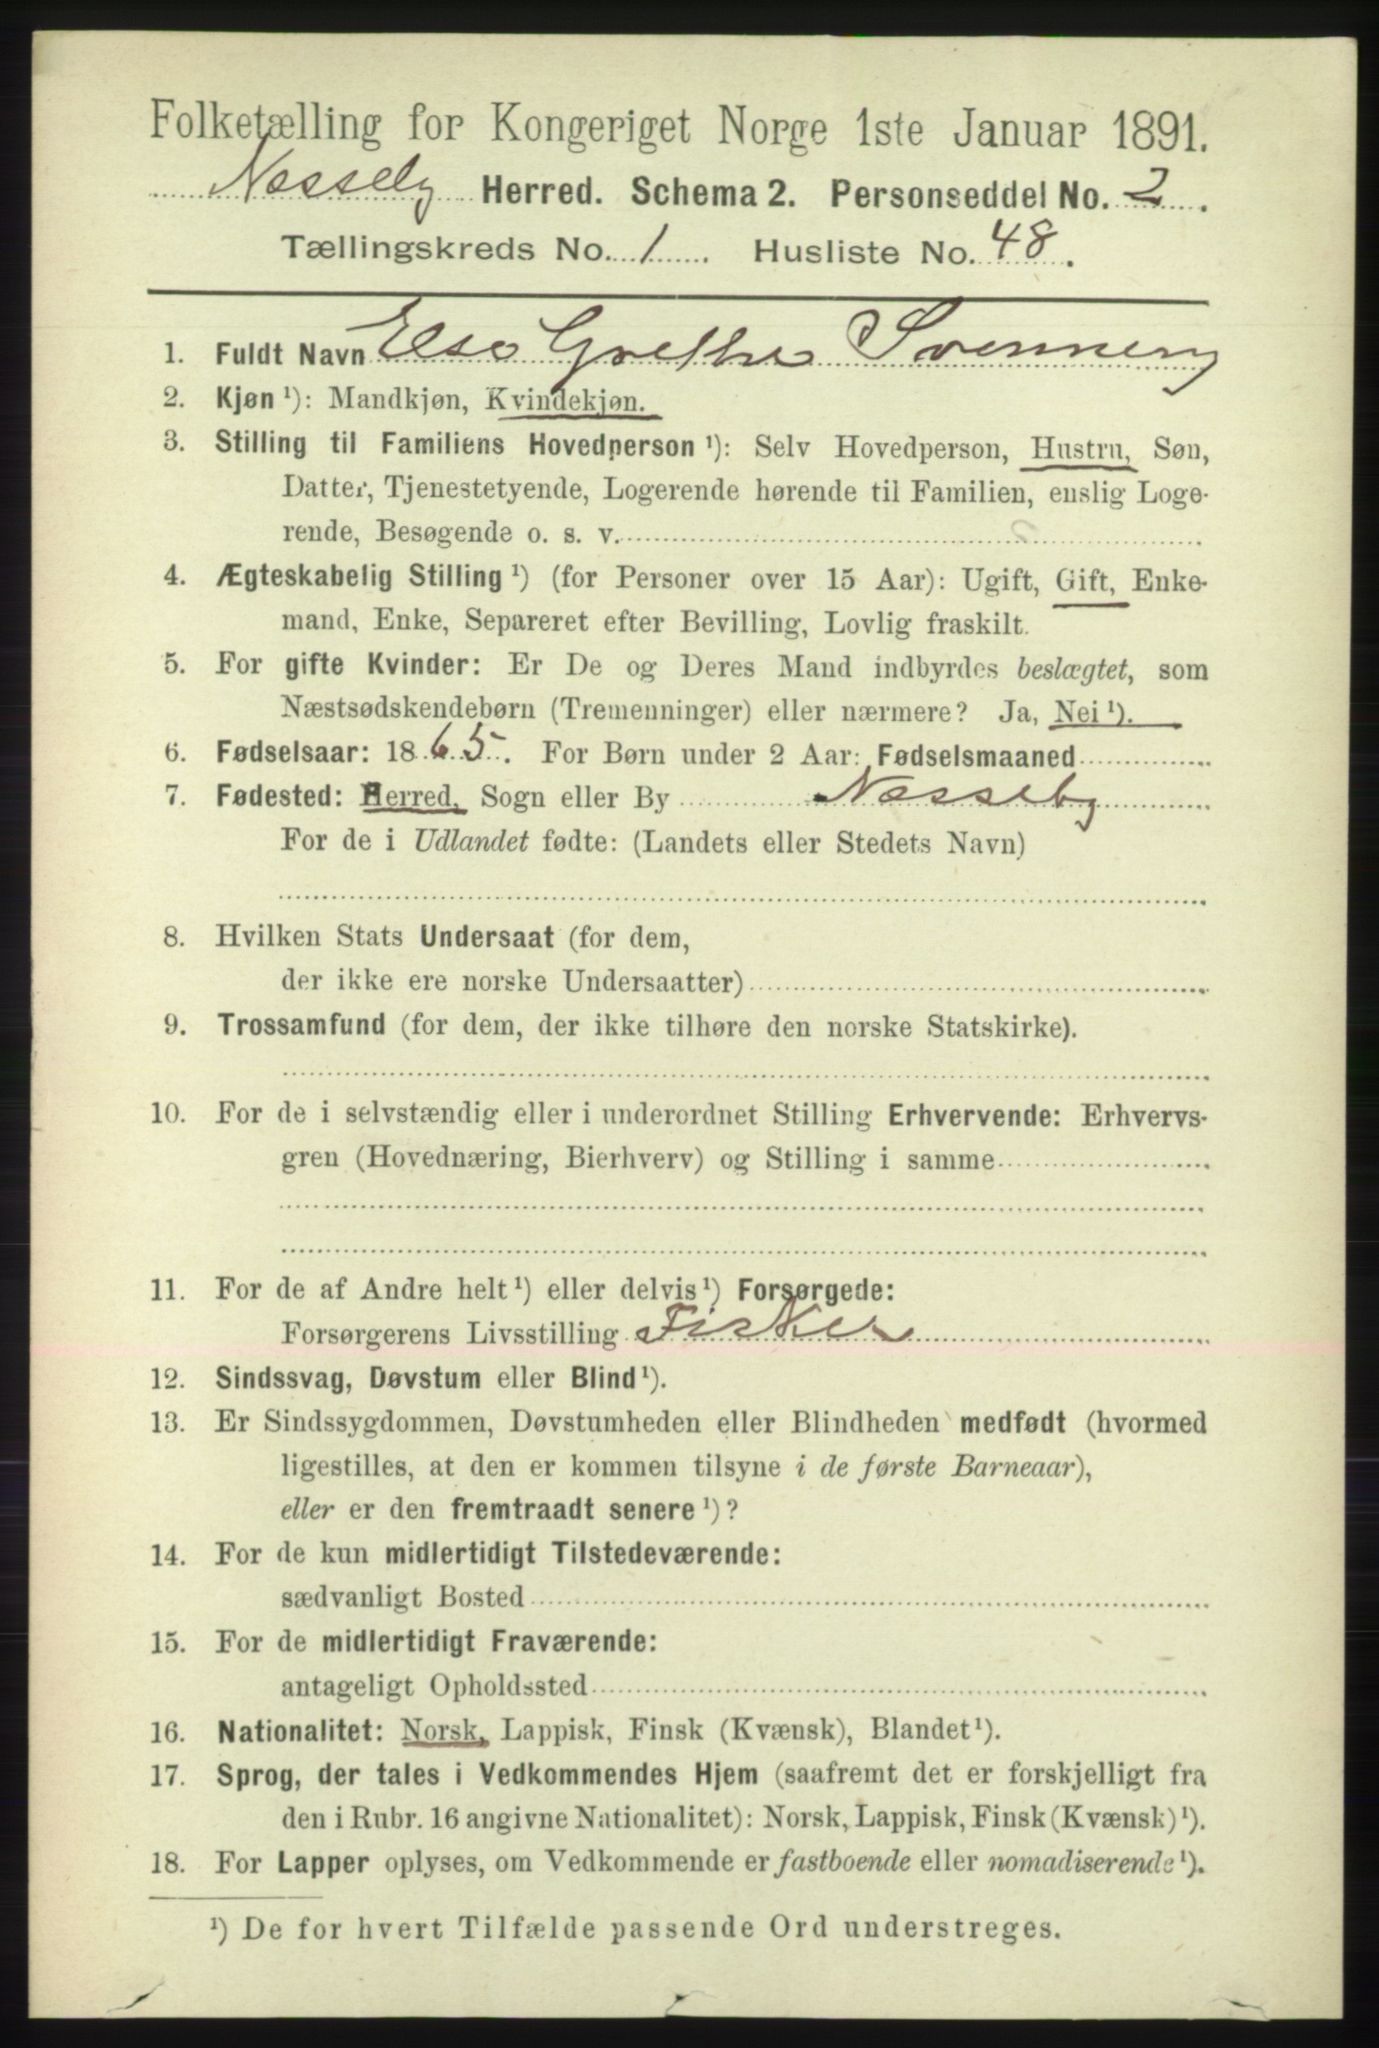 Folketælling for Kongeriget Norge 1ste Januar 1891.
Nesseby Herred. Schema 2. Personseddel No. 2.
Tællingskreds No. 1. Husliste No. 48.
1. Fuldt Navn Else Grethe Svenning
2. Kjøn ¹): Mandkjøn, Kvindekjøn.
3. Stilling til Familiens Hovedperson ¹): Selv Hovedperson, Hustru, Søn,
Datter, Tjenestetyende, Logerende hørende til Familien, enslig Loge-
rende, Besøgende o. s. v.
4. Ægteskabelig Stilling ¹) (for Personer over 15 Aar): Ugift, Gift, Enke-
mand, Enke, Separeret efter Bevilling, Lovlig fraskilt.
5. For gifte Kvinder: Er De og Deres Mand indbyrdes beslægtet, som
Næstsødskendebørn (Tremenninger) eller nærmere? Ja, Nei ¹).
6. Fødselsaar: 1865. For Børn under 2 Aar: Fødselsmaaned
7. Fødested: Herred, Sogn eller By Nesseby
For de i Udlandet fødte: (Landets eller Stedets Navn)
8. Hvilken Stats Undersaat (for dem,
der ikke ere norske Undersaatter)
9. Trossamfund (for dem, der ikke tilhøre den norske Statskirke).
10. For de i selvstændig eller i underordnet Stilling Erhvervende: Erhvervs-
gren (Hovednæring, Bierhverv) og Stilling i samme
11. For de af Andre helt ¹) eller delvis ¹) Forsørgede:
Forsørgerens Livsstilling Fisker
12. Sindssvag, Døvstum eller Blind ¹).
13. Er Sindssygdommen, Døvstumheden eller Blindheden medfødt (hvormed
ligestilles, at den er kommen tilsyne i de første Barneaar),
eller er den fremtraadt senere ¹)?
14. For de kun midlertidigt Tilstedeværende:
sædvanligt Bosted
15. For de midlertidigt Fraværende:
antageligt Opholdssted
16. Nationalitet: Norsk, Lappisk, Finsk (Kvænsk), Blandet ¹).
17. Sprog, der tales i Vedkommendes Hjem (saafremt det er forskjelligt fra
den i Rubr. 16 angivne Nationalitet): Norsk, Lappisk, Finsk (Kvænsk) ¹).
18. For Lapper oplyses, om Vedkommende er fastboende eller nomadiserende ¹).
¹) De for hvert Tilfælde passende Ord understreges.